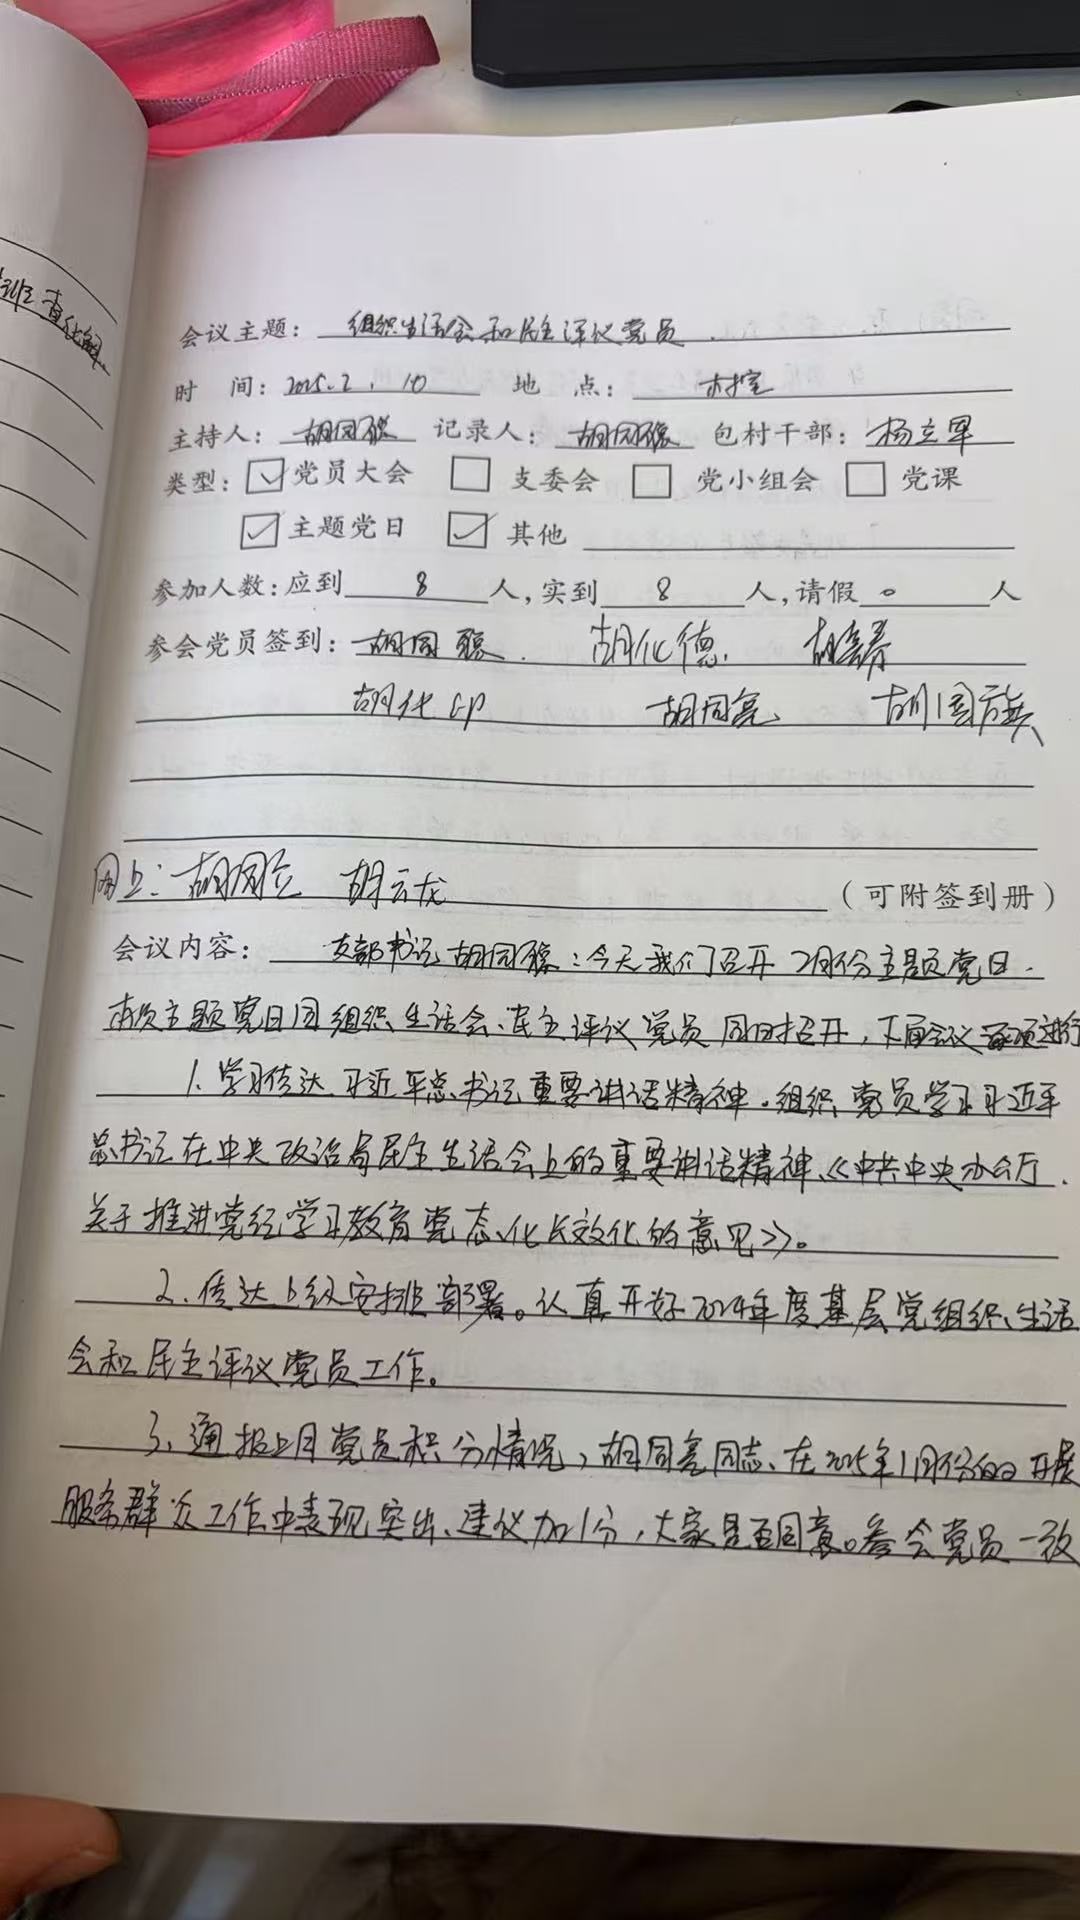 会议主题：组织生活会和民主评议党员
时 间：2025.2.10 地 点：村室
主持人：胡同稳 记录人：胡同稳 包村干部：杨立军
类型：☑党员大会 □支委会 □党小组会 □党课
☑主题党日 ☑其他
参加人数：应到 8 人，实到 8 人，请假 0 人
参会党员签到：胡同稳 胡化德
胡化 胡同亮 胡国旗
网上：胡同 胡云龙 （可附签到册）
会议内容：支部书记胡同稳：今天我们召开2月份主题党日.
本次主题党日同组织生活会、民主评议党员同日召开，下面会议逐项进行
1.学习传达习近平总书记重要讲话精神。组织党员学习习近平
总书记在中央政治局民主生活会上的重要讲话精神、《中共中央办公厅
关于推进党纪学习教育党态化长效化的意见》。
2.传达上级安排部署。认真开好2024年度基层党组织生活
会和民主评议党员工作。
3、通报上月党员积分情况，胡同亮同志、在2025年1月份的 开展
服务群众工作中表现突出、建议加1分，大家是否同意。参会党员一致